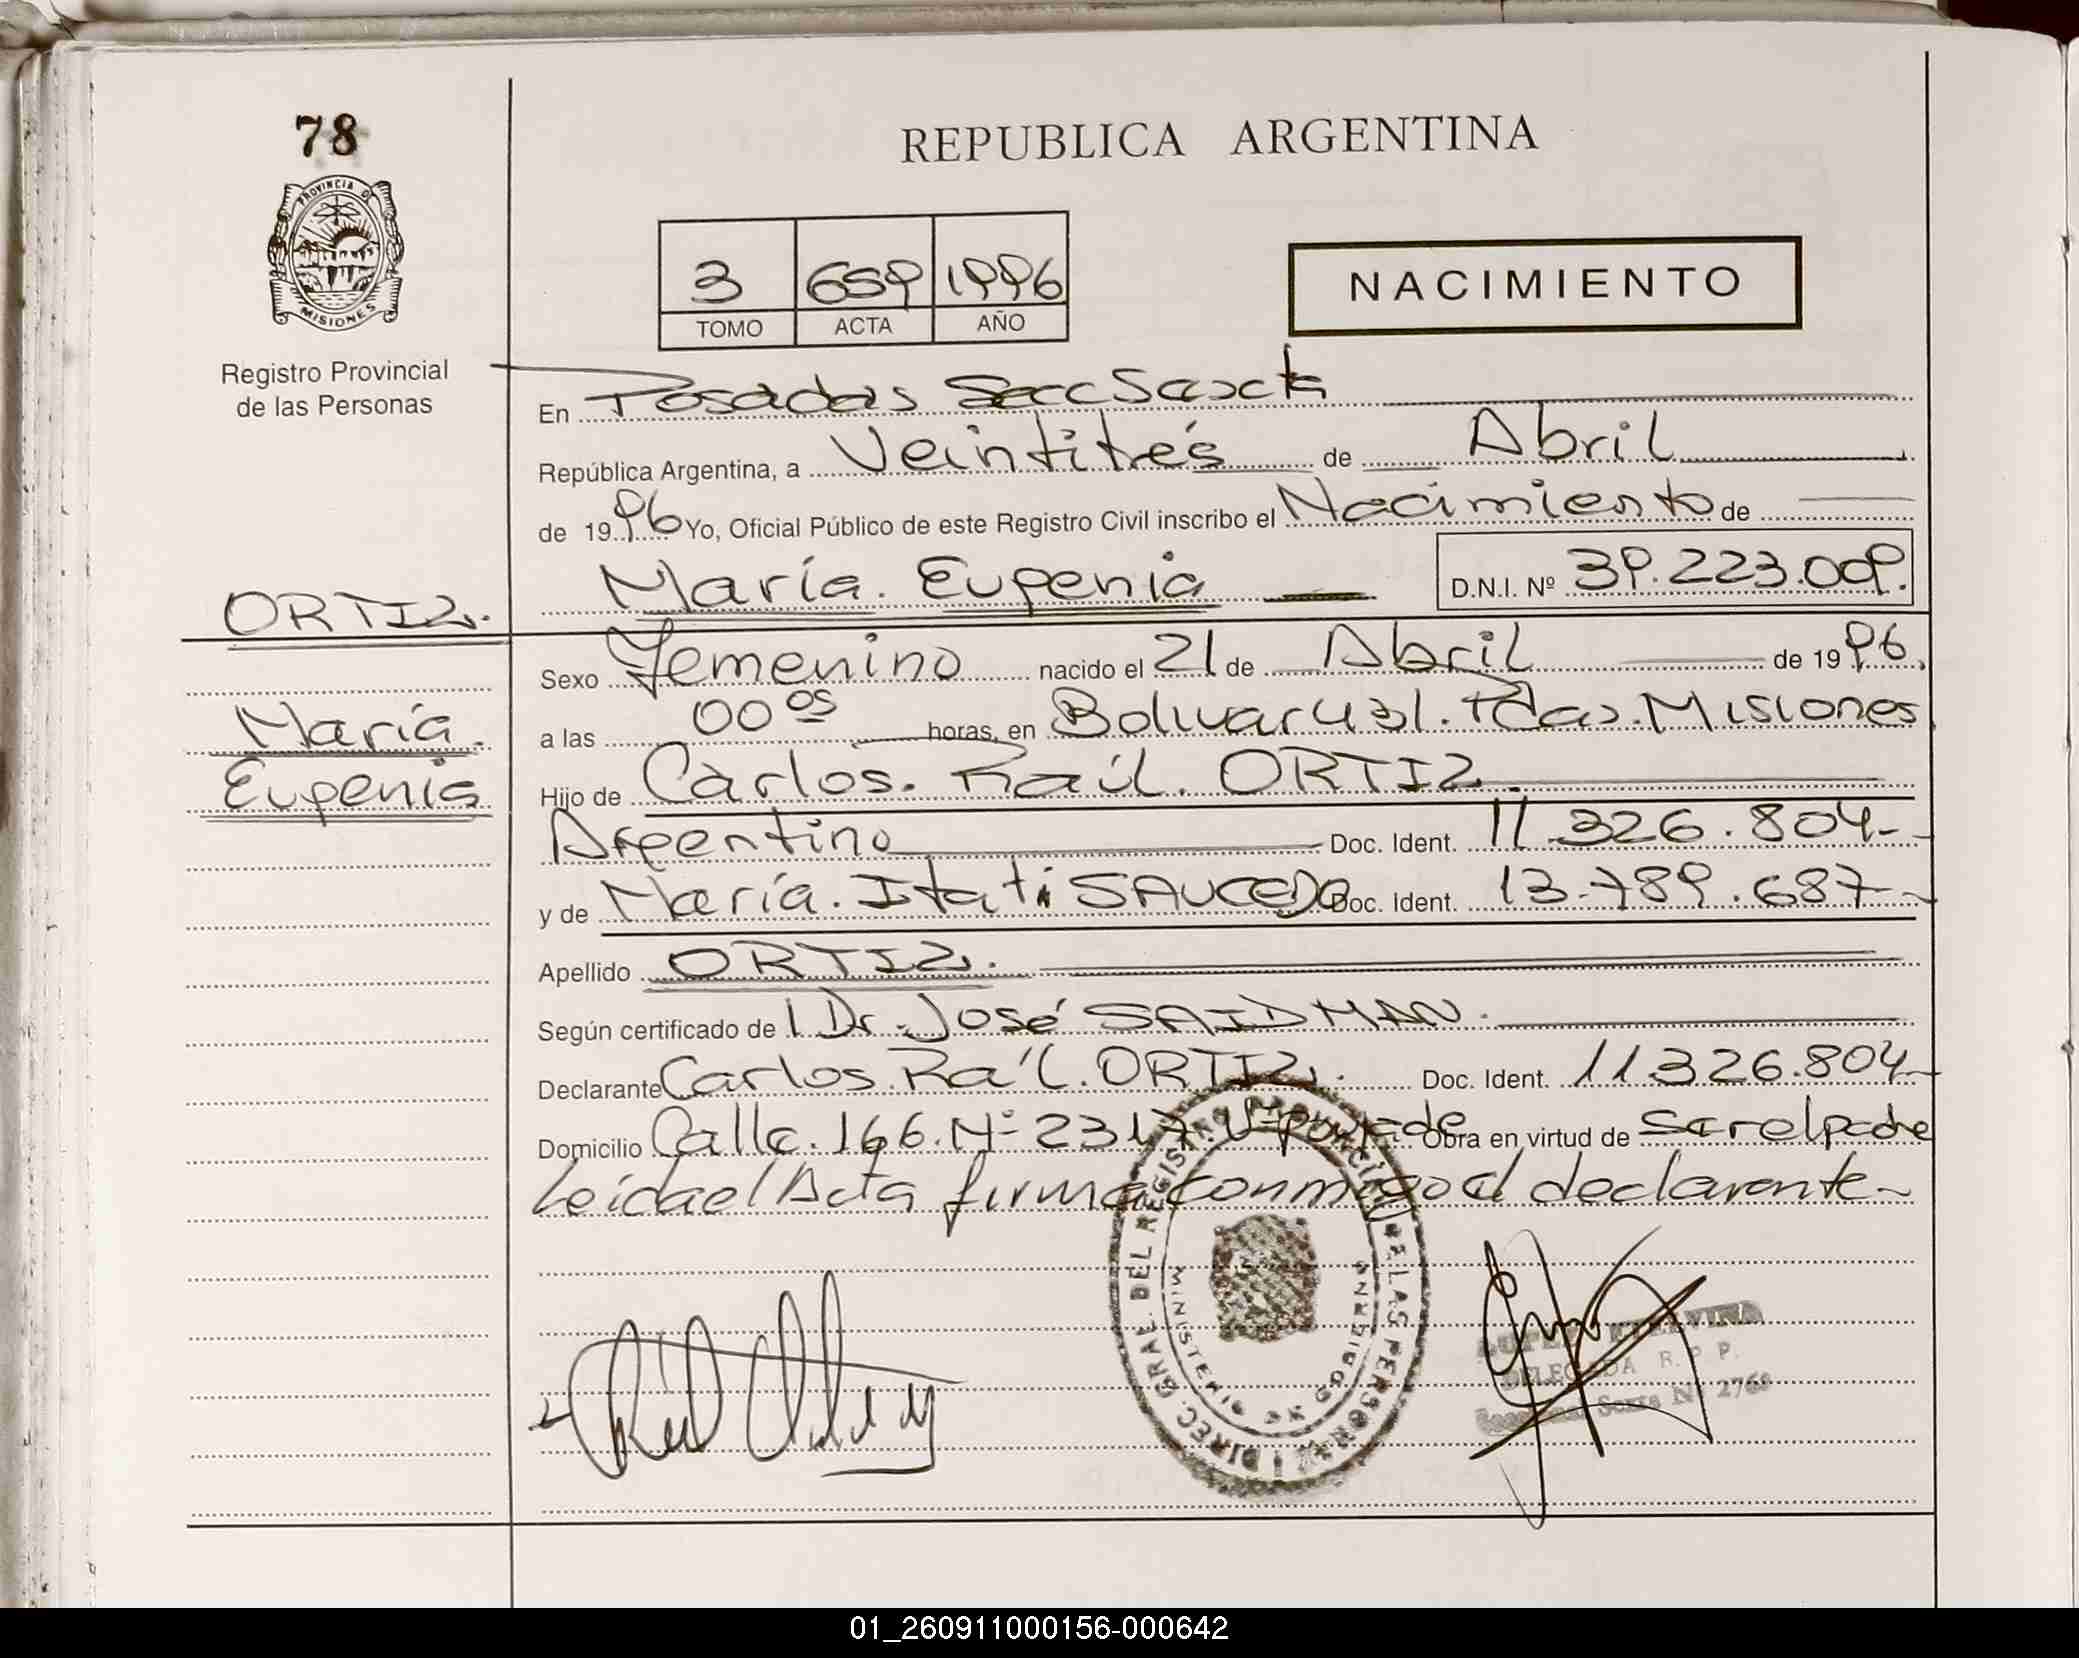 78
REPUBLICA ARGENTINA
PROVINCIA D
MISIONES
Registro Provincial
de las Personas
3 659 1996
TOMO ACTA AÑO
NACIMIENTO
En Posadas Secc Sexta
República Argentina, a Veintitrés de Abril
de 1996 Yo, Oficial Público de este Registro Civil inscribo el Nacimiento de
María. Eugenia D.N.I. Nº 39.223.009.
ORTIZ.
María.
Eugenia
Sexo Femenino nacido el 21 de Abril de 1996.
a las 00 05 horas, en Bolivar 431. Pdas. Misiones
Hijo de Carlos. Raúl. ORTIZ.
Argentino Doc. Ident. 11.326.804-
y de María. Itatí SAUCEDO Doc. Ident. 13.789.687-
Apellido ORTIZ.
Según certificado de Dr. José SAIDMAN.
Declarante Carlos. Raúl. ORTIZ. Doc. Ident. 11.326.804-
Domicilio Calle. 166. Nº 2317. Obra en virtud de ser el padre
Leida el Acta firma conmigo el declarante-
DIREC. GRAL. DEL REGISTRO PROVINCIAL DE LAS PERSONAS
MINISTERIO DE GOBIERNO
DELEGADA R. P. P.
Seccional Sexta Nº 2768
01_260911000156-000642